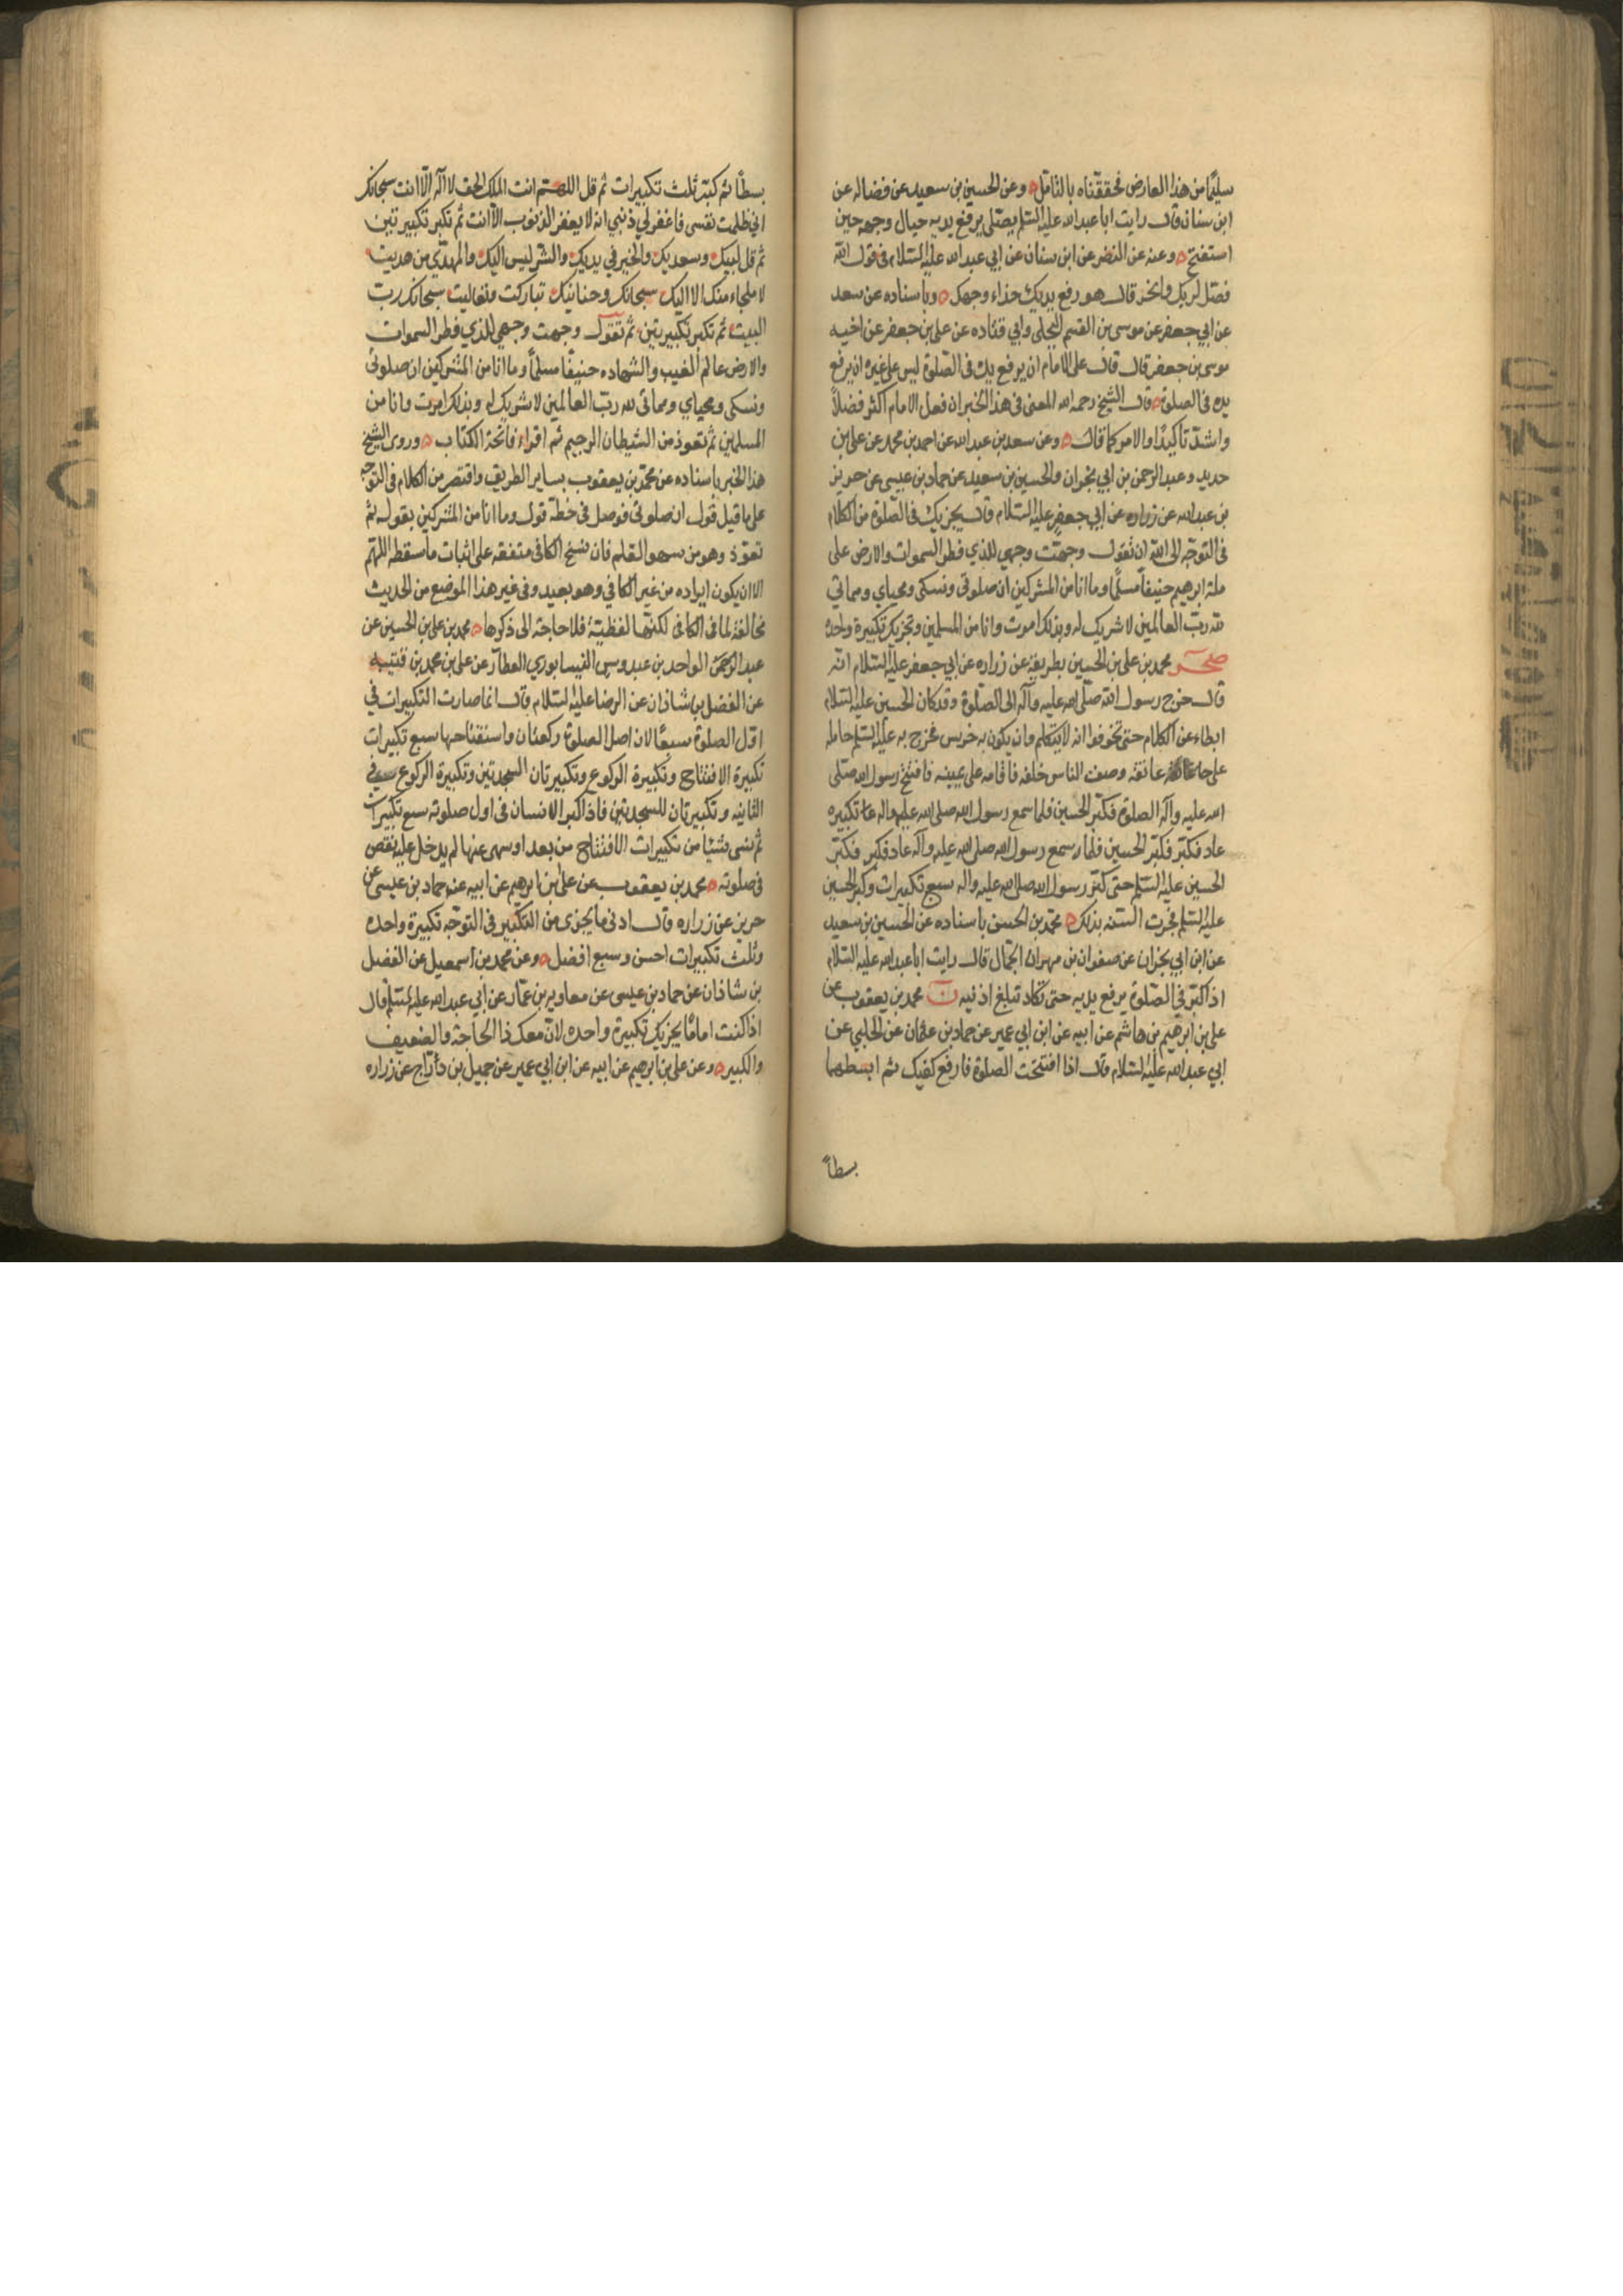 سليمًا من هذا العارض فحققناه بالتامّل ه وعن الحسين بن سعيد عن فضاله عن
ابن سنان قال رايت ابا عبدالله عليه السّلم يصلّى يرفع يديه حيال وجهه حين
استفتح ه وعنه عن النضر عن ابن سنان عن ابي عبدالله عليه السّلام في قول الله
فصّل لربك وانحر قال هو رفع يديك حذاء وجهك ه وباسناده عن سعد
عن ابي جعفر عن موسى بن القسم البجلى وابي قتاده عن على بن جعفر عن اخيه
موسى بن جعفر قال قال على الامام ان يرفع يده فى الصّلوة ليس على غيره ان يرفع
يده فى الصلوة ه قال الشيخ رحمه الله المعنى فى هذا الخبر ان فعل الامام اكثر فضلاً
واشدّ تاكيدًا والامر كما قال ه وعن سعد بن عبدالله عن احمد بن محمد عن على بن
حديد وعبد الرحمن بن ابي نجران والحسين بن سعيد عن حماد بن عيسى عن حريز
بن عبدالله عن زراره عن ابي جعفر عليه السّلام قال يجزيك فى الصّلوة من الكلام
فى التوجّه الى الله ان تقول وجهّت وجهي للذي فطر السموات والارض على
ملة ابرهيم حنيفاً مسلمًا وما انا من المشركين ان صلوتى ونسكى ومحياي ومماتي
لله ربّ العالمين لا شريك له وبذلك امرت وانا من المسلمين وتجزيك تكبيرة واحده
صحر محمد بن على بن الحسين بطريقه عن زراره عن ابي جعفر عليه السّلام انّه
قال خرج رسول الله صلّى الله عليه وآله الى الصّلوة وقد كان الحسين عليه السّلام
ابطاء عن الكلام حتى تخوفوا انه لا يتكلم وان يكون به خرس فخرج به عليه السّلم حامله
على عاتقه وصف الناس خلفه فاقامه على يمينه فافتتح رسول الله صلّى
الله عليه وآله الصلوة فكبّر الحسين فلما سمع رسول الله صلى الله عليه واله تكبيره
عاد فكبّر فكبّر الحسين فلما سمع رسول الله صلى الله عليه وآله عاد فكبر فكبّر
الحسين عليه السّلم حتى كبّر رسول الله صلى الله عليه واله سبع تكبيرات وكبّر الحسين
عليه السّلم فجرت السّنه بذلك ه محمّد بن الحسن باسناده عن الحسين بن سعيد
عن ابن ابي نجران عن صفوان بن مهران الجمّال قال رايت ابا عبدالله عليه السّلام
اذا كبّر في الصّلوة يرفع يديه حتى تكاد تبلغ اذنيه ن محمد بن يعقوب عن
على بن ابرهيم بن هاشم عن ابيه عن ابن ابي عمير عن حماد بن عثمان عن الحلبي عن
ابي عبدالله عليه السّلام قال اذا افتتحت الصلوة فارفع كفيك ثم ابسطهما
بسطاً
بسطًا ثم كبّر ثلث تكبيرات ثم قل اللهمّ انت الملك الحق لا اله الّا انت سبحانك
اني ظلمت نفسى فاغفر لي ذنبي انه لا يغفر الذنوب الّا انت ثم تكبر تكبيرتين
ثم قل لبيك وسعديك والخير في يديك والشر ليس اليك والمهدّي من هديت
لا ملجاء منك الا اليك سبحانك وحنانيك تباركت وتعاليت سبحانك ربّ
البيت ثم تكبر تكبيرتين ثم تقول وجهت وجهي للذي فطر السموات
والارض عالم الغيب والشهاده حنيفًا مسلمًا وما انا من المشركين ان صلوتى
ونسكى ومحياي ومماتى لله ربّ العالمين لا شريك له وبذلك امرت وانا من
المسلمين ثم تعوذ من الشيطان الرجيم ثم اقراء فاتحة الكتاب ه وروى الشيخ
هذا الخبر باسناده عن محمّد بن يعقوب بساير الطريق واقتصر من الكلام فى التوجه
على ما قبل قول ان صلوتى فوصل فى خطّه قول وما انا من المشركين بقوله ثم
تعوّذ وهو من سهو القلم فان نسخ الكافى متفقه على اثبات ما سقطه اللهمّ
الا ان يكون ايراده من غير الكافي وهو بعيد وفى غير هذا الموضع من الحديث
مخالفة لما فى الكافى لكنّها لفظيّة فلا حاجة الى ذكرها ه محمد بن على بن الحسين عن
عبد الواحد بن عبدوس النيسابوري العطّار عن على بن محمد بن قتيبه
عن الفضل بن شاذان عن الرضا عليه السّلام قال انما صارت التكبيرات في
اوّل الصلوة سبعًا لان اصل الصلوة ركعتان واستفتاحها سبع تكبيرات
تكبيرة الافتتاح وتكبيرة الركوع وتكبيرتان السجدتين وتكبيرة الركوع في
الثانيه وتكبيرتان للسجدتين فاذا كبر الانسان فى اول صلوته سبع تكبيرات
ثم نسى شيئًا من تكبيرات الافتتاح من بعد او سهى عنها لم يدخل عليه نقص
فى صلوته ه محمد بن يعقوب عن على بن ابرهيم عن ابيه عن حماد بن عيسى عن
حريز عن زراره قال ادنى ما يجزى من التكبير فى التوجّه تكبيرة واحده
وثلث تكبيرات احسن وسبع افضل ه وعن محمد بن اسمعيل عن الفضل
بن شاذان عن حماد بن عيسى عن معاويه بن عمّار عن ابي عبدالله عليه السّلم قال
اذا كنت امامًا يجزيك تكبيرة واحده لانّ معك ذا الحاجة والضعيف
والكبير ه وعن على بن ابرهيم عن ابيه عن ابن ابي عمير عن جميل بن درّاج عن زراره